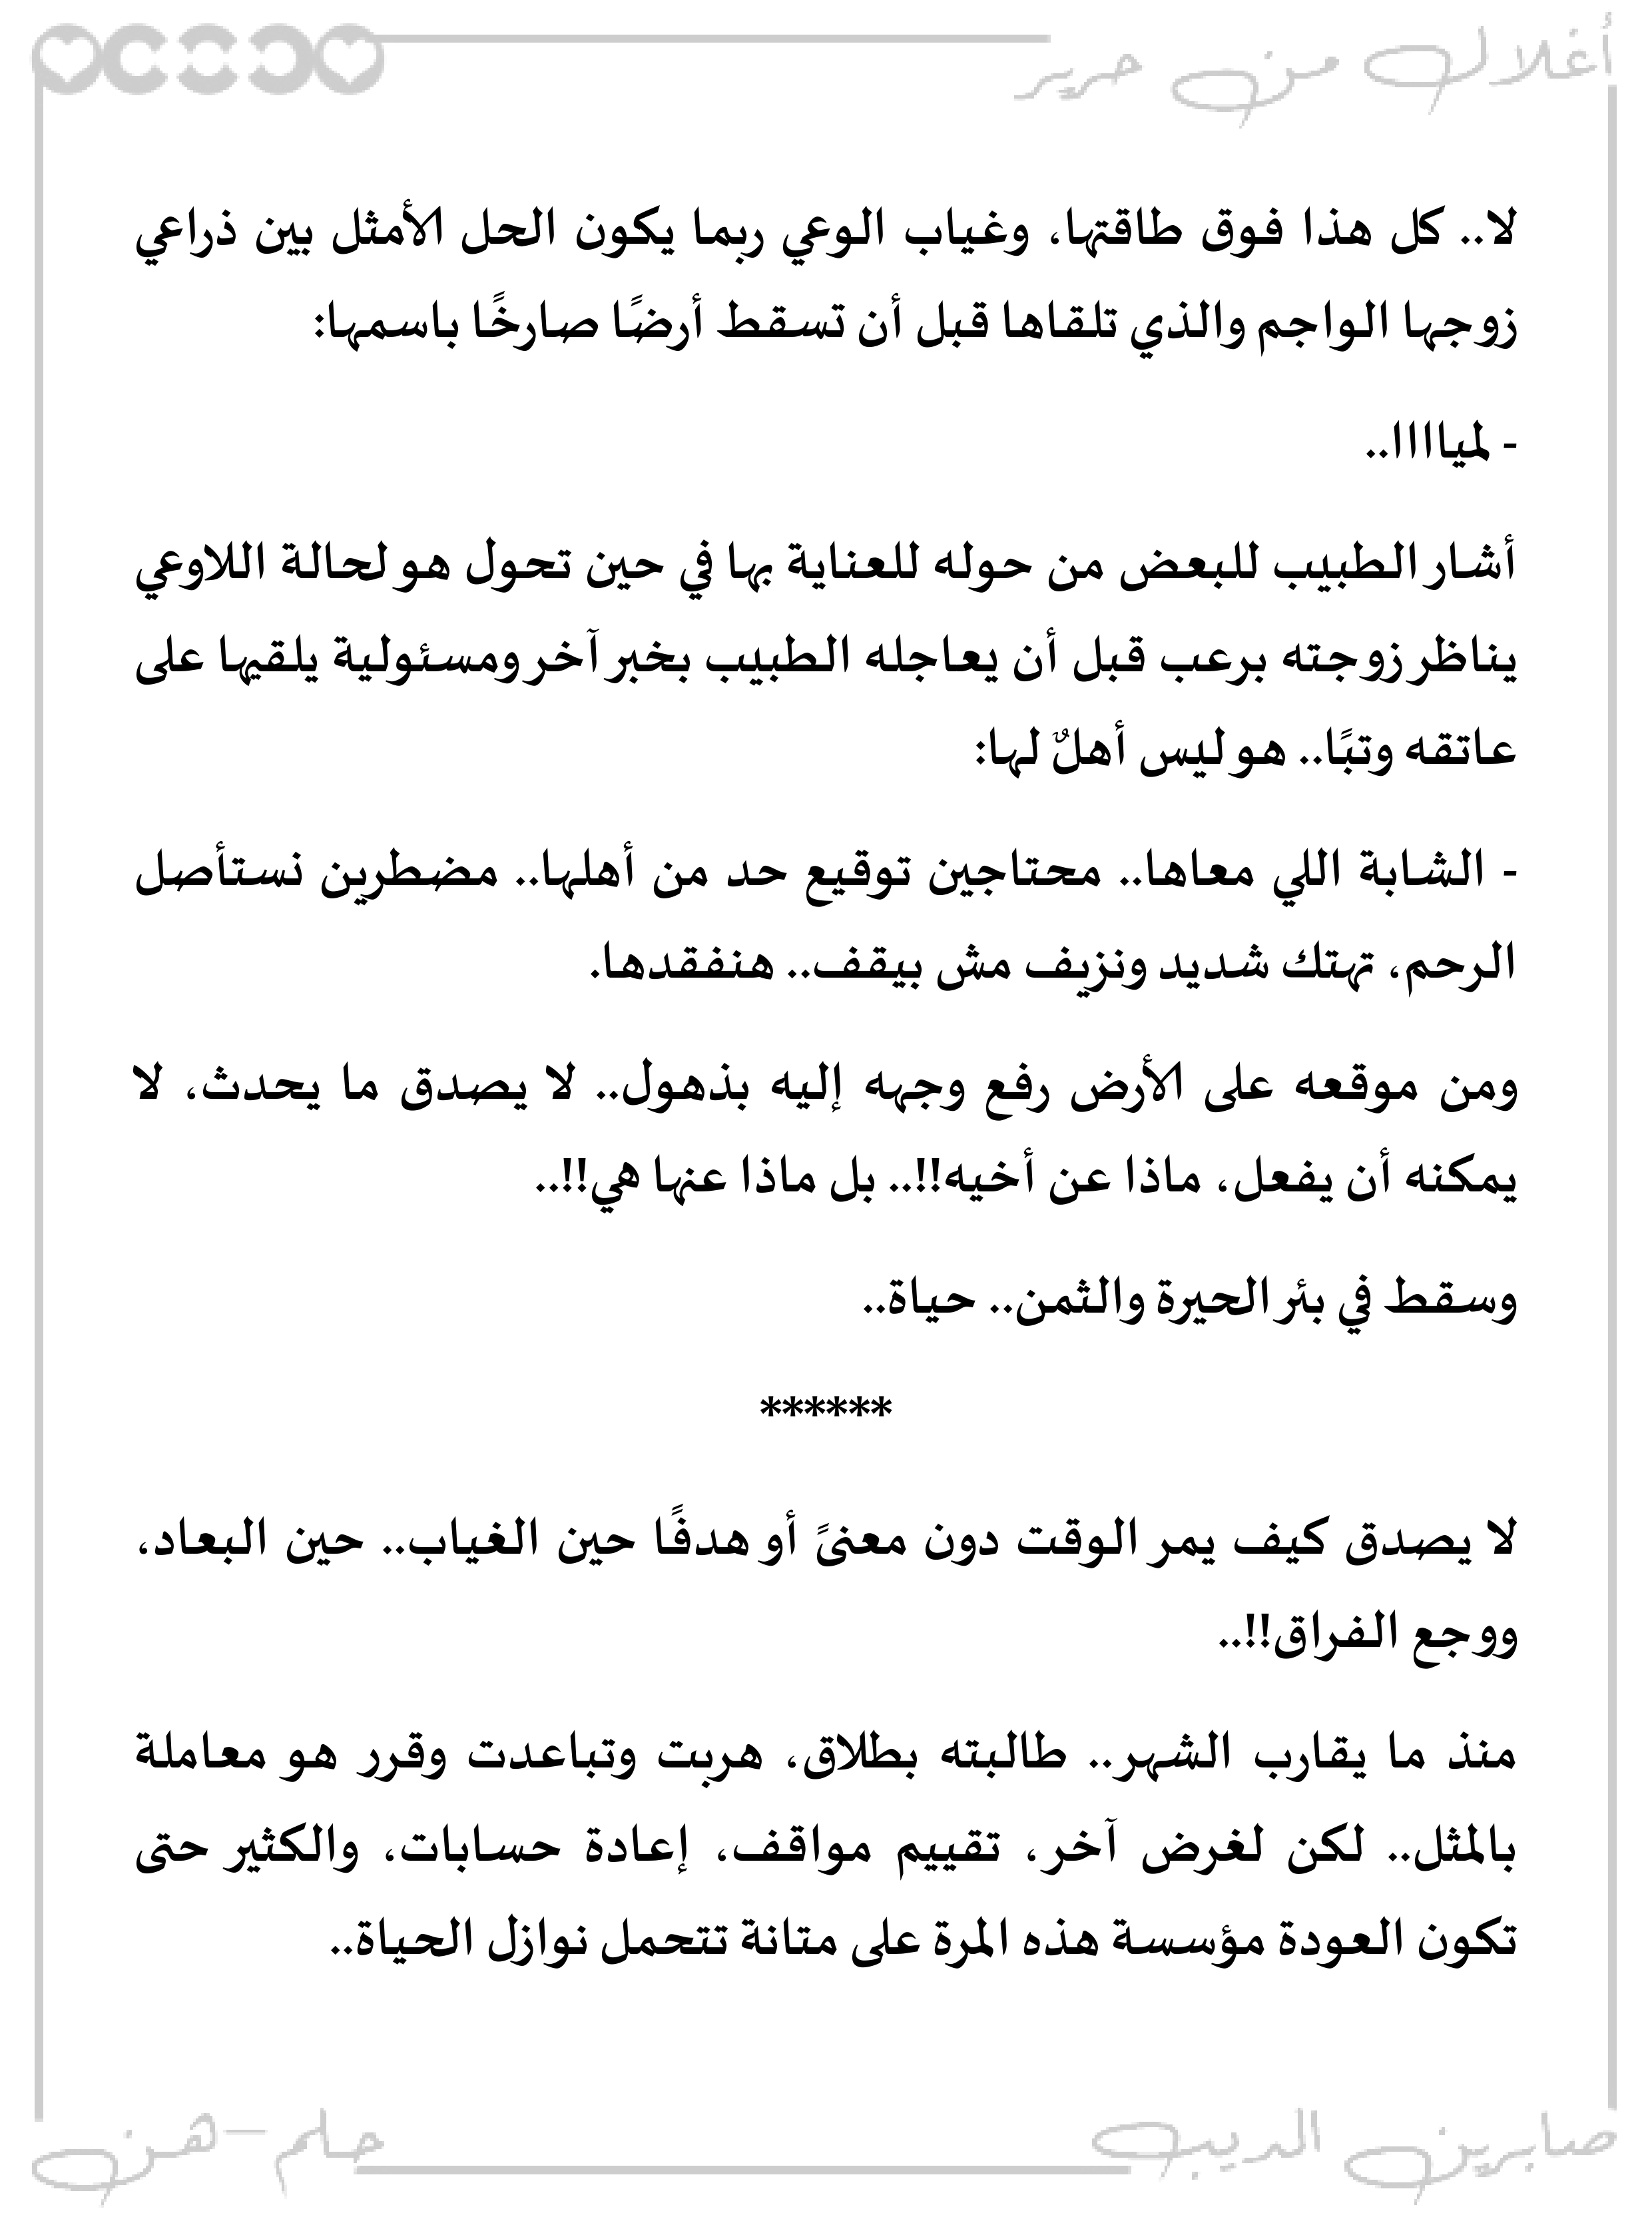 أغلال من حرير
لا.. كل هذا فوق طاقتها، وغياب الوعي ربما يكون الحل الأمثل بين ذراعي
زوجها الواجم والذي تلقاها قبل أن تسقط أرضًا صارخًا باسمها:
- لمياااا..
أشار الطبيب للبعض من حوله للعناية بها في حين تحول هو لحالة اللاوعي
يناظر زوجته برعب قبل أن يعاجله الطبيب بخبر آخر ومسئولية يلقيها على
عاتقه وتبًا.. هو ليس أهلٌ لها:
- الشابة اللي معاها.. محتاجين توقيع حد من أهلها.. مضطرين نستأصل
الرحم، تهتك شديد ونزيف مش بيقف.. هنفقدها.
ومن موقعه على الأرض رفع وجهه إليه بذهول.. لا يصدق ما يحدث، لا
يمكنه أن يفعل، ماذا عن أخيه!!.. بل ماذا عنها هي!!..
وسقط في بئر الحيرة والثمن.. حياة..
******
لا يصدق كيف يمر الوقت دون معنىً أو هدفًا حين الغياب.. حين البعاد،
ووجع الفراق!!..
منذ ما يقارب الشهر.. طالبته بطلاق، هربت وتباعدت وقرر هو معاملة
بالمثل.. لكن لغرض آخر، تقييم مواقف، إعادة حسابات، والكثير حتى
تكون العودة مؤسسة هذه المرة على متانة تتحمل نوازل الحياة..
صابرين الديب
حلم-هن